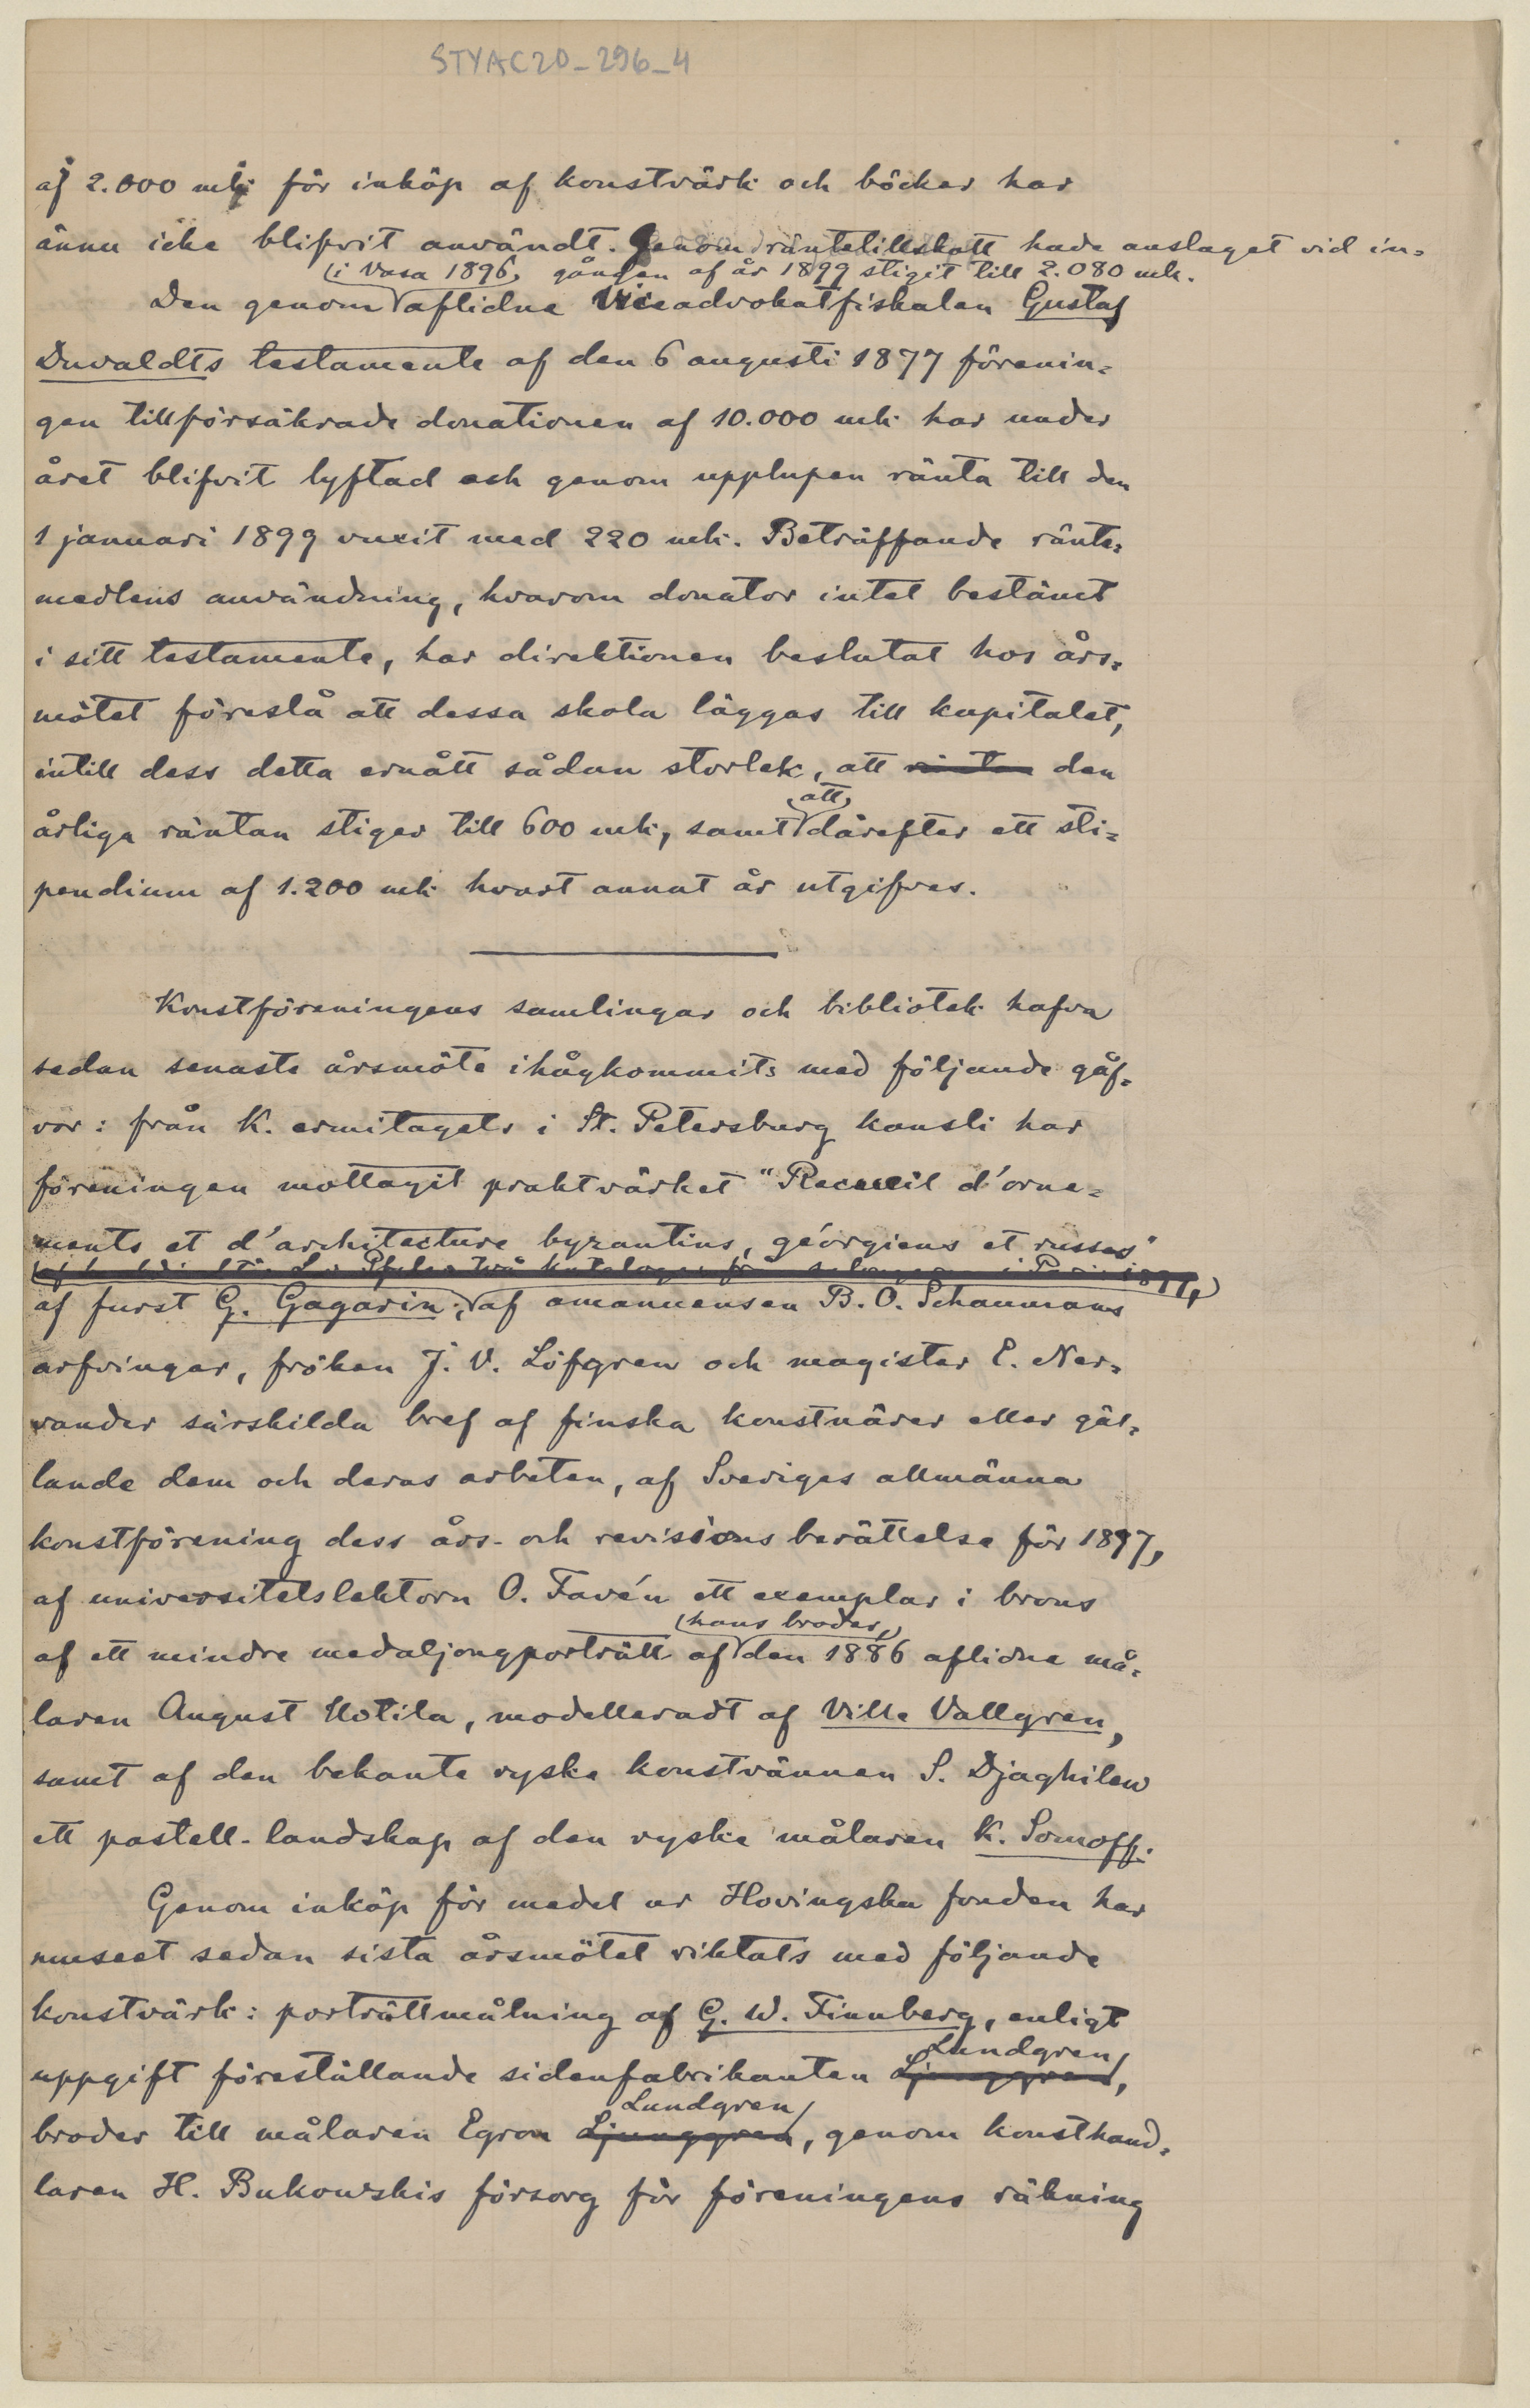 STYAC20_296_4
af 2.000 mk för inköp af konstvärk och böcker har
ännu icke blifvit användt. Genom räntetillskott hade anslaget vid in-
(i Vasa 1896) gången af år 1899 stigit till 2.080 mk.
Den genom aflidne Viceadvokatfiskalen Gustaf
Duvaldts testamente af den 6 augusti 1877 förenin-
gen tillförsäkrade donationen af 10.000 mk har under
året blifvit lyftad och genom upplupen ränta till den
1 januari 1899 vuxit med 220 mk. Beträffande ränte-
medlens användning, hvarom donator intet bestämt
i sitt testamente, har direktionen beslutat hos års-
mötet föreslå att dessa skola läggas till kapitalet,
intill dess detta ernått sådan storlek, att räntan den
att
årliga räntan stiger till 600 mk, samt därefter ett sti-
pendium af 1.200 mk hvart annat år utgifves.
Konstföreningens samlingar och bibliotek hafva
sedan senaste årsmöte ihågkommits med följande gåf-
vor: från K. ermitagets i St. Petersburg kansli har
föreningen mottagit praktvärket "Recueil d'orne-
ments et d'architecture byzantins, géorgiens et russes"
två kataloger från salongen i Paris 1897,
af furst G. Gagarin; af amanuensen B. O. Schaumans
arfvingar, fröken J. V. Löfgren och magister E. Ner-
vander särskilda bref af finska konstnärer eller gäl-
lande dem och deras arbeten, af Sveriges allmänna
konstförening dess års- och revisionsberättelse för 1897,
af universitetslektorn O. Favén ett exemplar i brons
hans broder,
af ett mindre medaljongporträtt af den 1886 aflidne må-
laren August Uotila, modelleradt af Ville Vallgren,
samt af den bekante ryske konstvännen S. Djaghilew
ett pastell-landskap af den ryske målaren K. Somoff.
Genom inköp för medel ur Hovingska fonden har
museet sedan sista årsmötet riktats med följande
konstvärk: porträttmålning af G. W. Finnberg, enligt
Lundgren
uppgift föreställande sidenfabrikanten Ljunggren,
Lundgren
broder till målaren Egron Ljunggren, genom konsthand-
laren H. Bukowskis försorg för föreningens räkning